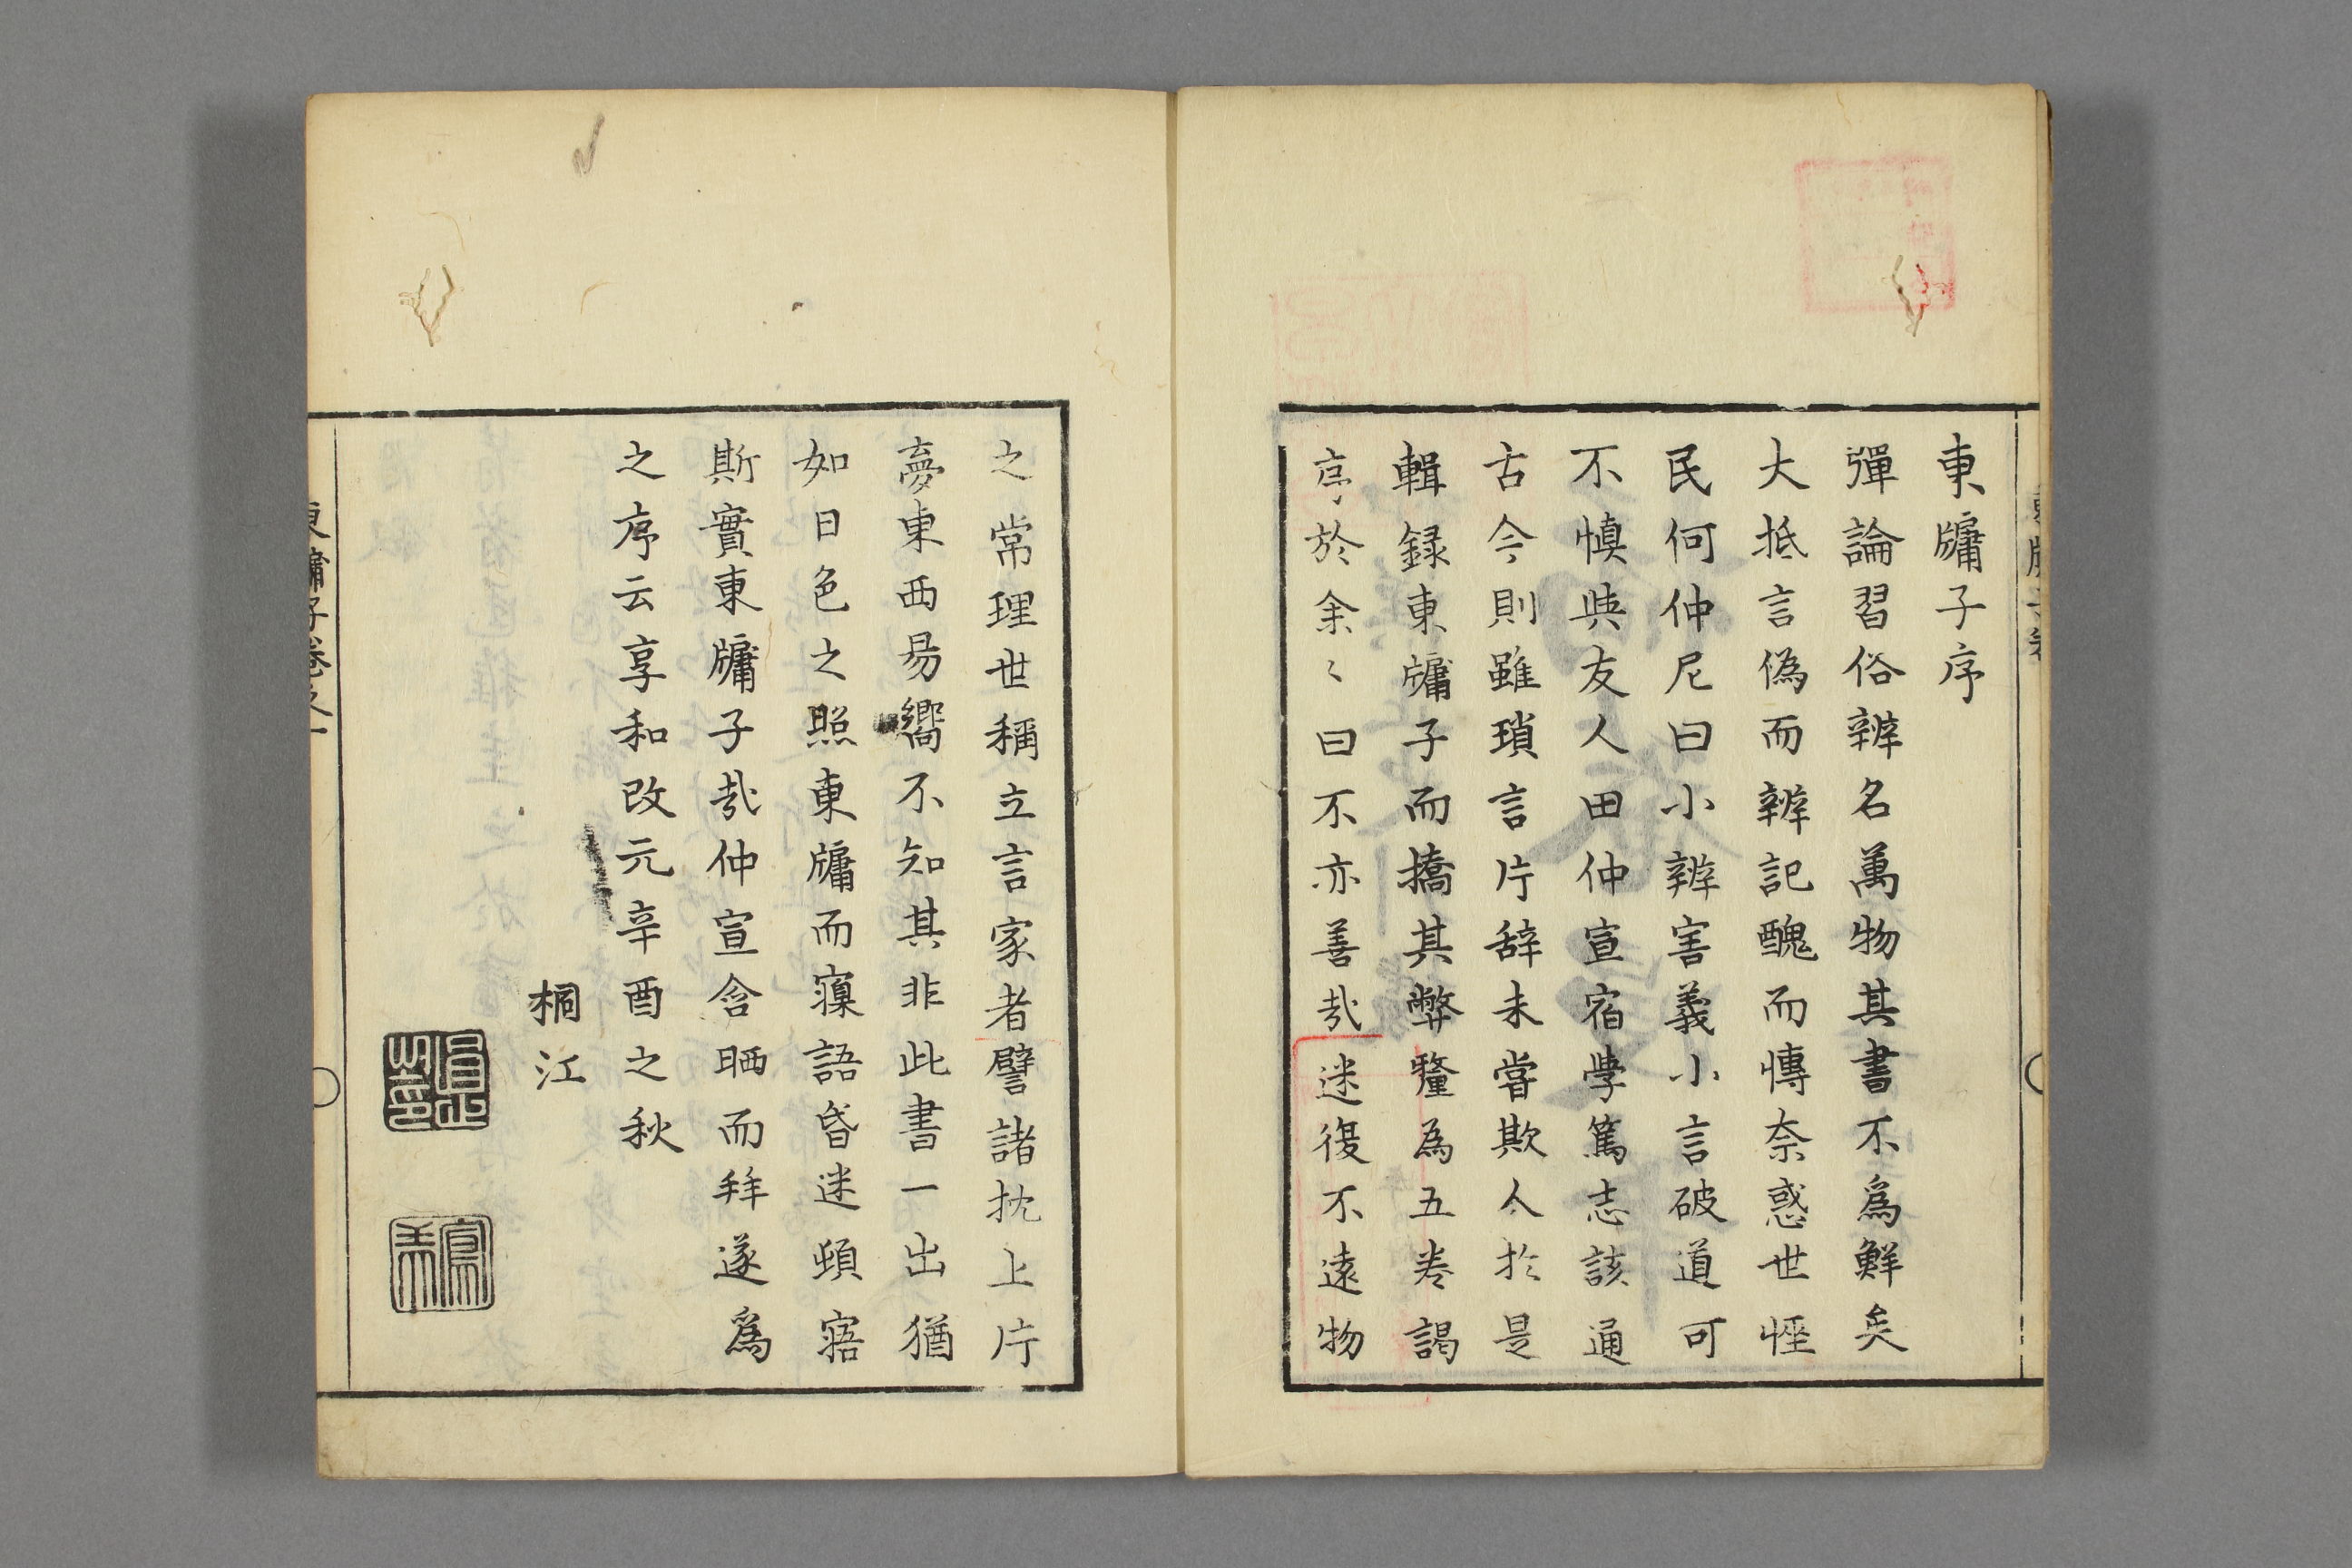 東牖子序
彈論習俗辨名萬物其書不爲鮮矣
大抵言偽而辨記醜而慱奈惑世悾
民何仲尼曰小辨害義小言破道可
不慎與友人田仲宣宿學篤志該通
古今則雖瑣言片辞未嘗欺人於是
輯録東牖子而撟其弊釐為五卷謁
序於余〻曰不亦善㢤迷復不遠物
之常理世稱立言家者譬諸枕上片
夢東西易嚮不知其非此書一出猶
如日色之照東牖而寱語昏迷頓寤
斯實東牖子㢤仲宣含哂而拜遂爲
之序云享和改元辛酉之秋
桐江
東牖子卷之一